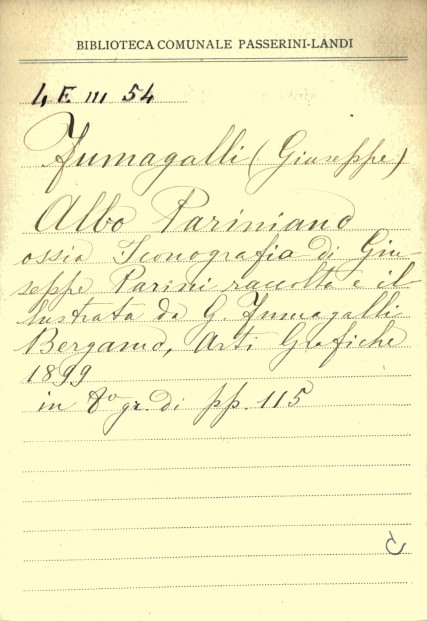 BIBLIOTECA COMUNALE PASSERINI-LANDI
4 E III 54
Fumagalli (Giuseppe)
Albo Pariniano
ossia Iconografia di Giu-
seppe Parini raccolta e il-
lustrata da G. Fumagalli
Bergamo, Arti Grafiche
1899
in 8º gr. di pp. 115